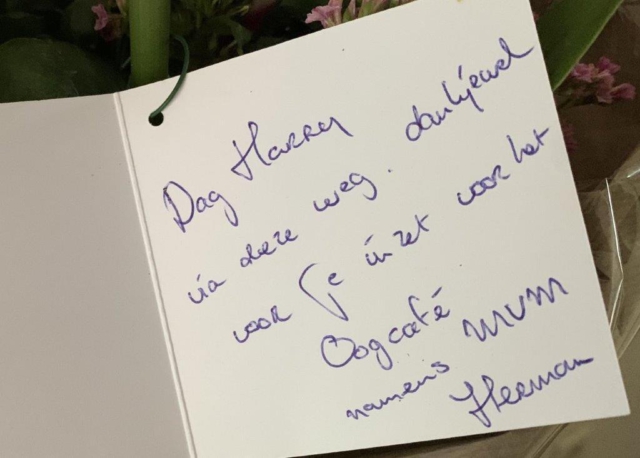 Dag Harry
via deze weg. dankjewel
voor je inzet voor het
Oogcafé
namens MVM
Herman